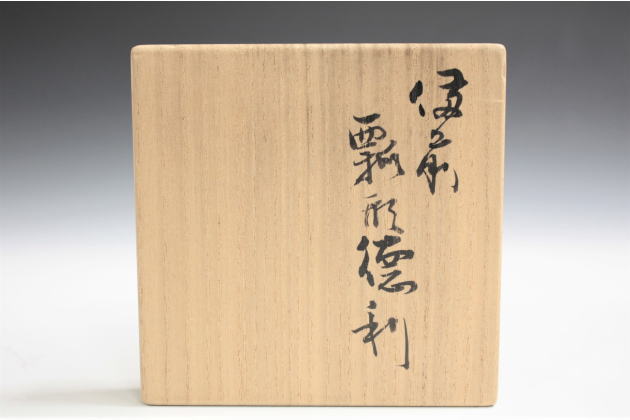 備前
瓢形徳利